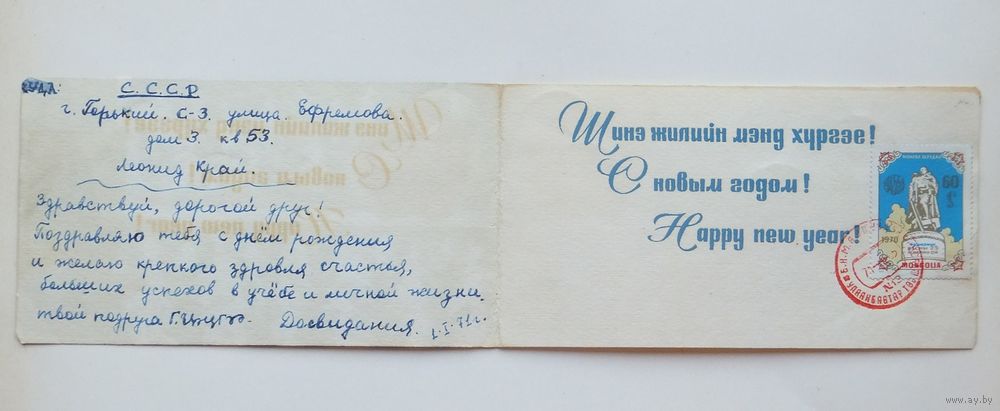 С.С.С.Р
г. Горький. С-3. улица. Ефремова.
дом 3. кв 53.
Леонид Край.
Здравствуй, дорогой друг!
Поздравляю тебя с днём рождения
и желаю крепкого здоровья счастья,
больших успехов в учёбе и личной жизни.
твой подруга Г.
Досвидания. 1-I-71 г.
Шинэ жилийн мэнд хүргэе!
С новым годом!
Happy new year!
МОНГОЛ ШУУДАН
60
1970
MONGOLIA
УЛААНБААТАР
www.ay.by